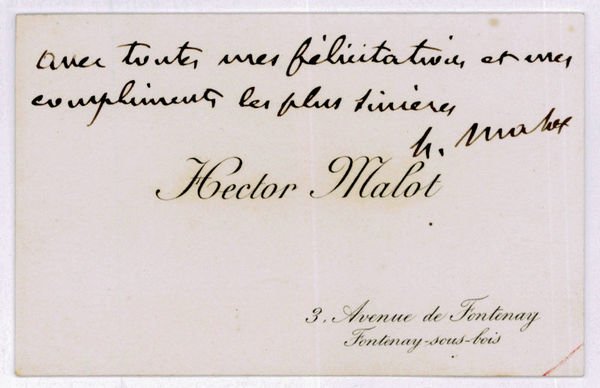 avec toutes mes félicitations et mes
compliments les plus sincères
h. Malot
Hector Malot
3, Avenue de Fontenay
Fontenay-sous-bois